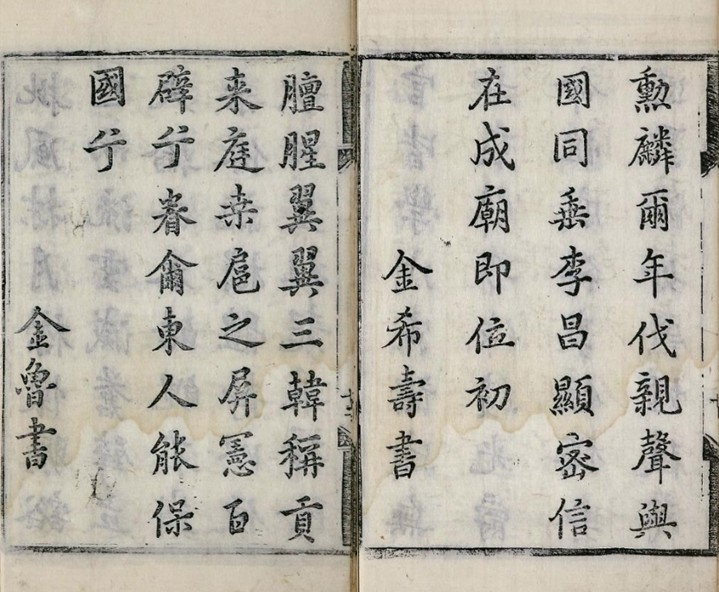 勳麟爾年代親聲與
國同垂李昌顯密信
在成廟即位初
金希壽書
膻腥翼翼三韓稱貢
来庭桒扈之屏憲百
辟亐眷爾東人能保
國亐
金魯書